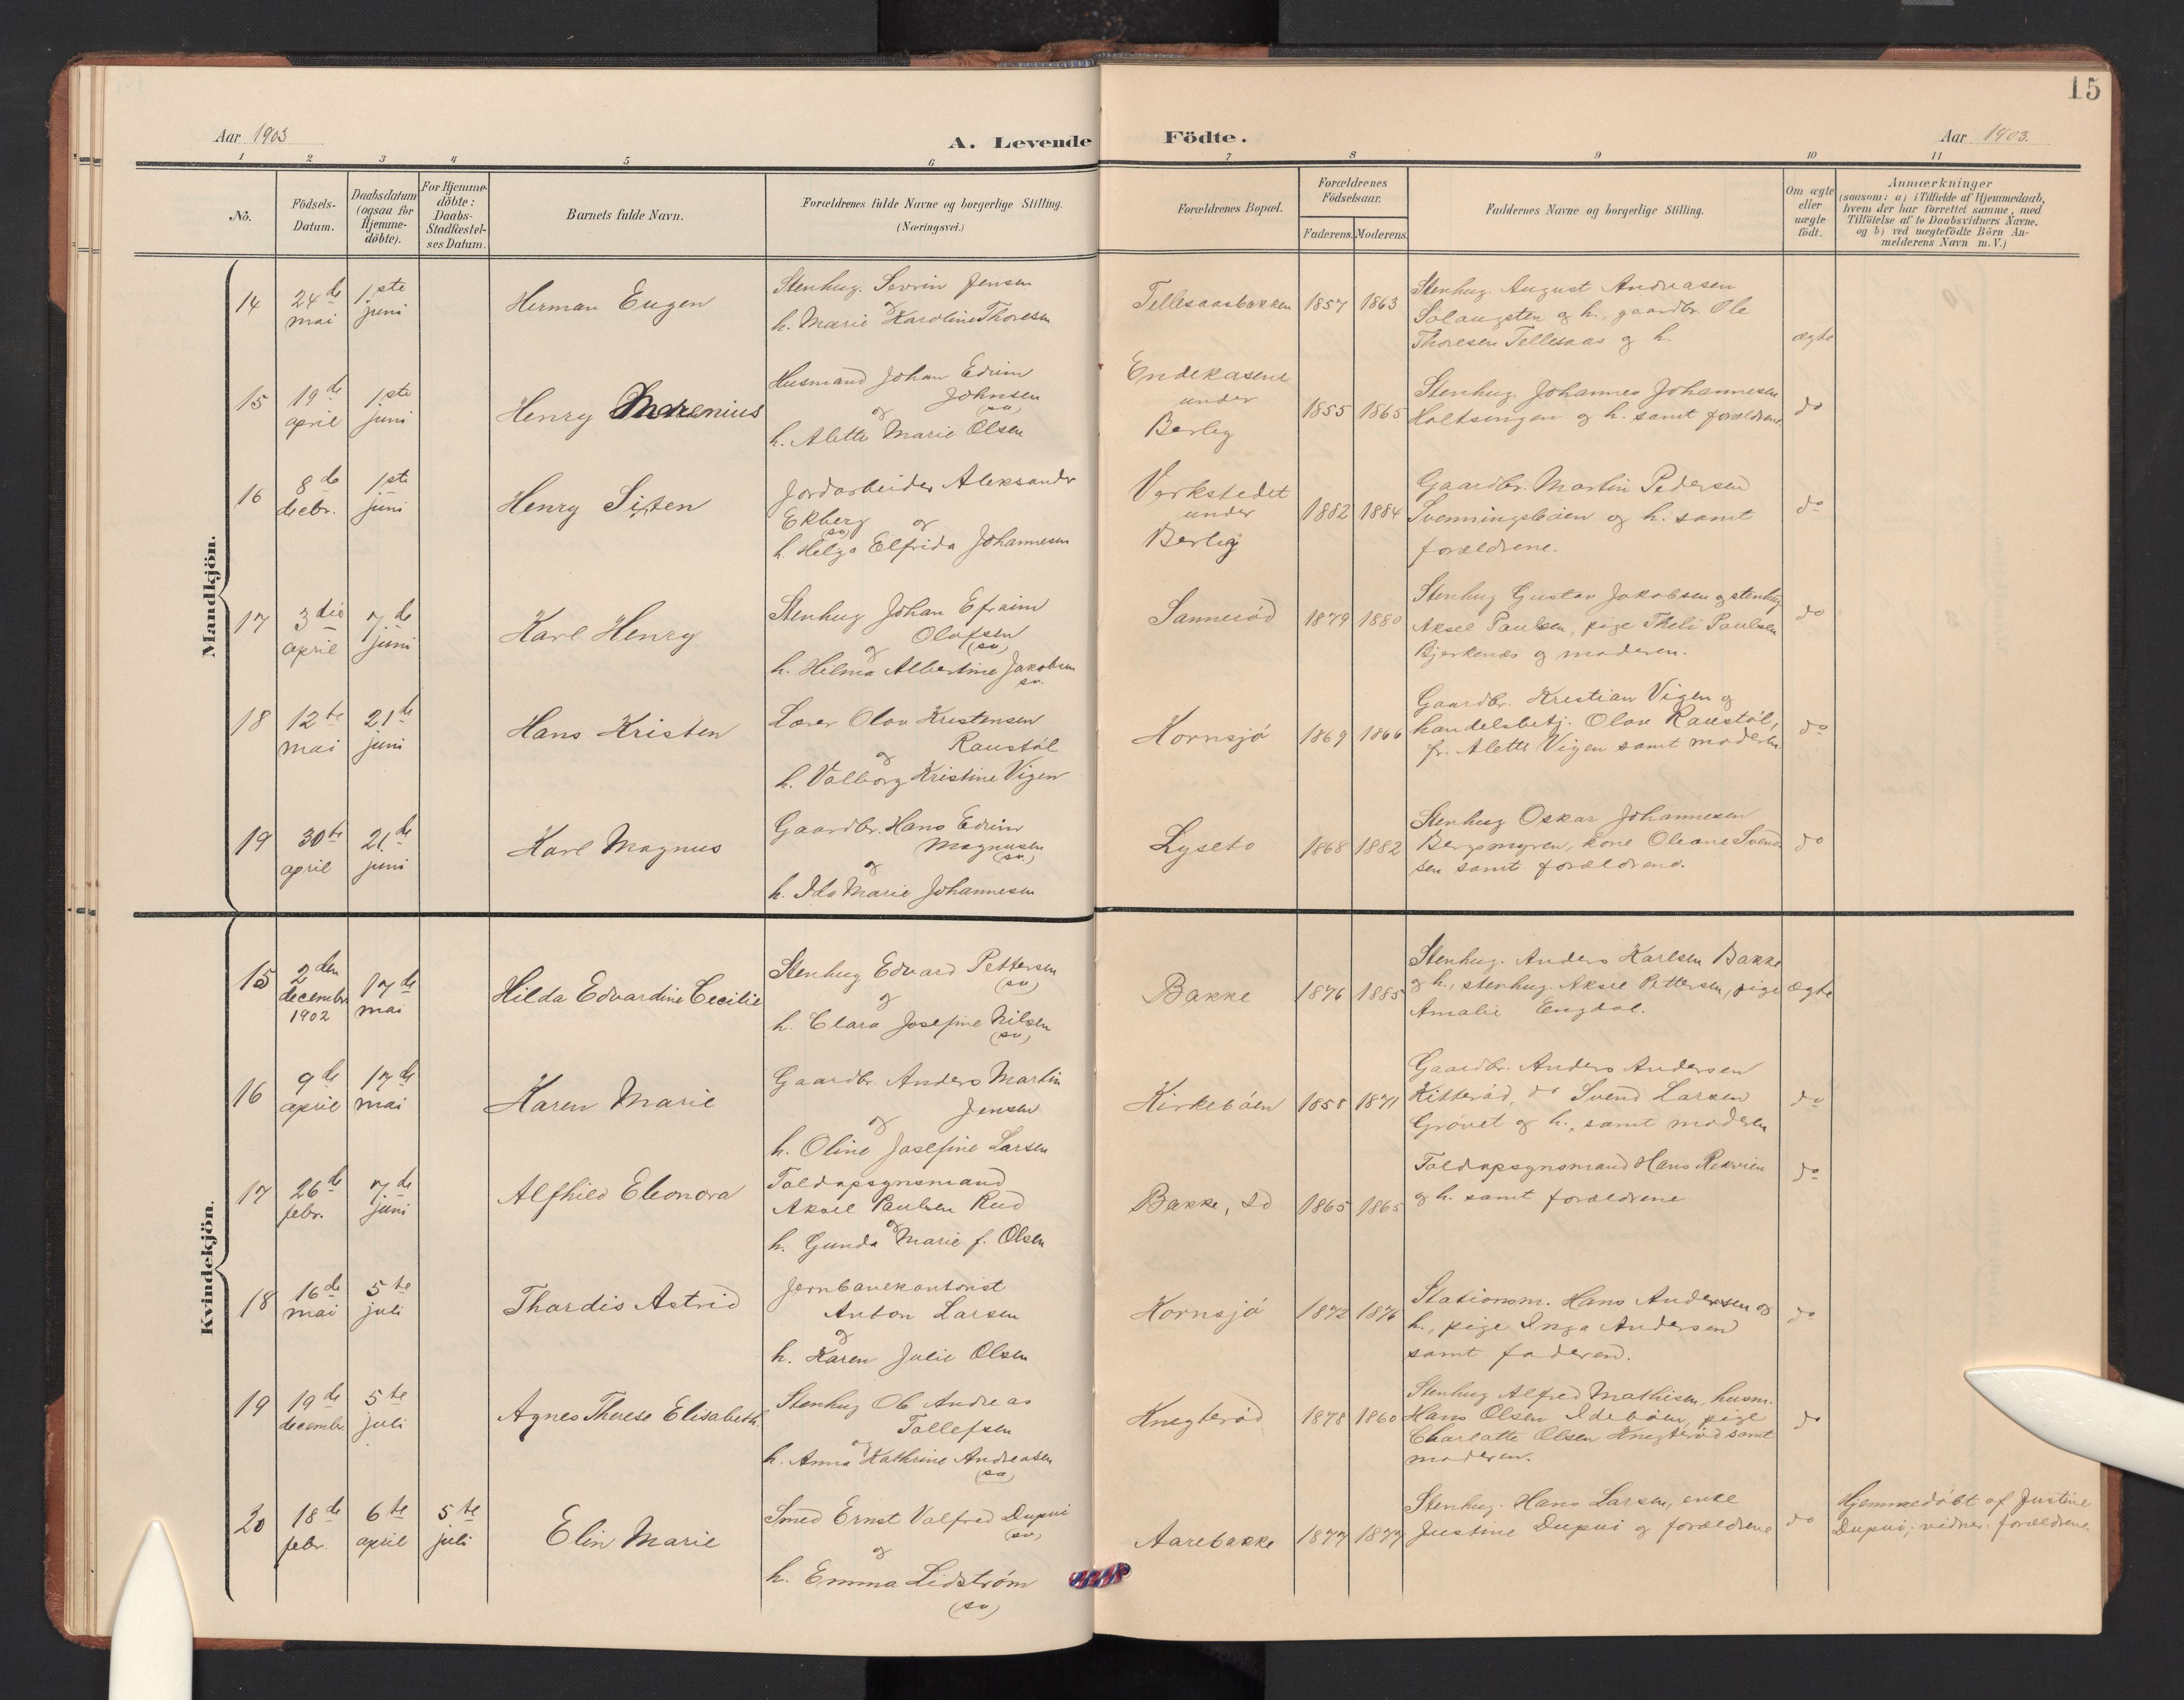 15
Aar 1903
A. Levende Födte.
Aar 1903.
1 2 3 4 5 6 7 8 9 10 11
Nö.
Födsels-
Datum.
Daabsdatum
(ogsaa for
Hjemme-
döbte).
For Hjemme-
döbte:
Daabs-
Stadfæstel-
ses Datum.
Barnets fulde Navn.
Forældrenes fulde Navne og borgerlige Stilling.
(Næringsvei.)
Forældrenes Bopæl.
Forældrenes
Födselsaar.
Faderens. Moderens.
Faddernes Navne og borgerlige Stilling.
Om ægte
eller
uægte
födt.
Anmærkninger
(saasom: a) i Tilfælde af Hjemmedaab,
hvem der har forrettet samme, med
Tilföielse af to Daabsvidners Navne,
og b) ved uægtefödte Börn An-
melderens Navn m. V.)
Mandkjön.
14
24de
mai
1ste
juni
Herman Eugen
Stenhug. Sevrin Jensen
og
h. Marie Karoline Thoresen
Tellesaasbakken
1857 1863
Stenhug. August Andreasen
Solaugsten og h., gaardbr. Ole
Thoresen Tellesaas og h.
ægte
15
19de
april
1ste
juni
Henry Marenius
Husmand Johan Edvin
Johnsen
(sv)
og
h. Alette Marie Olsen
Endekasene
under
Berby
1855 1865
Stenhug. Johannes Johannesen
Holtsengen og h. samt forældrene.
do
16
8de
decbr.
1ste
juni
Henry Sixten
Jordarbeider Aleksander
Ekberg og
(sv)
h. Helga Elfrida Johannesen
Verkstedet
under
Berby
1882 1884
Gaardbr. Martin Pedersen
Svenningsbøen og h. samt
forældrene.
do
17
3die
april
7de
juni
Karl Henry
Stenhug Johan Efraim
Olofsen
(sv)
og
h. Hilma Albertine Jakobsen
sv.
Sannerød
1879 1880
Stenhug Gustav Jakobsen og stenhug
Aksel Paulsen, pige Theli Paulsen
Bjerkenæs og moderen.
do
18
12te
mai
21de
juni
Hans Kristen
Lærer Olav Kristensen
Raustøl
og
h. Valborg Kristine Vigen
Kornsjø
1869 1866
Gaardbr. Kristian Vigen og
handelsbetj. Olav Raustøl,
fr. Alette Vigen samt moderen.
do
19
30te
april
21de
juni
Karl Magnus
Gaardbr. Hans Edvin
Magnusen
(sv.)
og
h. Ida Marie Johannesen
Lyseto
1868 1882
Stenhug Oskar Johannesen
Bergsmyren, kone Oleane Svend-
sen samt forældrene.
do
Kvindekjön.
15
2den
decembr.
1902
17de
mai
Hilda Edvardine Cecilie
Stenhug Edvard Pettersen
(sv)
og
h. Clara Josefine Nilsen
(sv)
Bakke
1876 1885
Stenhug. Anders Karlsen Bakke
og h., stenhug. Aksel Pettersen, pige
Amalie Engdal.
ægte
16
9de
april
17de
mai
Karen Marie
Gaardbr. Anders Martin
Jensen
og
h. Oline Josefine Larsen
Kirkebøen
1858 1871
Gaardbr. Anders Andersen
Kitterød, do Svend Larsen
Grøvet og h., samt moderen
do
17
26de
febr.
7de
juni
Alfhild Eleonora
Toldopsynsmand
Aksel Paulsen Rud
og
h. Gunda Marie f. Olsen
Bakke, Id
1865 1865
Toldopsynsmand Hans
og h. samt forældrene
do
18
16de
mai
5te
juli
Thordis Astrid
Jernbanekontorist
Anton Larsen
og
h. Karen Julie Olsen
Kornsjø
1872 1876
Stationsm. Hans Andersen og
h., pige Inga Andersen
samt faderen.
do
19
19de
decembr.
5te
juli
Agnes Therese Elisabeth.
Stenhug Ole Andreas
Tollefsen
og
h. Anna Kathrine Andreasen
(sv)
Knegterød
1878 1860
Stenhug Alfred Mathisen, husm.
Hans Olsen Idebøen, pige
Charlotte Olsen Knegterød samt
moderen.
do
20
18de
febr.
6te
april
5te
juli
Elin Marie
Smed Ernst Valfred Dupui
(sv)
og
h. Emma Lidstrøm
(sv)
Aarebakke
1877 1877
Stenhug. Hans Larsen, enke
Justine Dupui og forældrene
do
Hjemmedøbt af Justine
Dupui; vidner: forældrene.